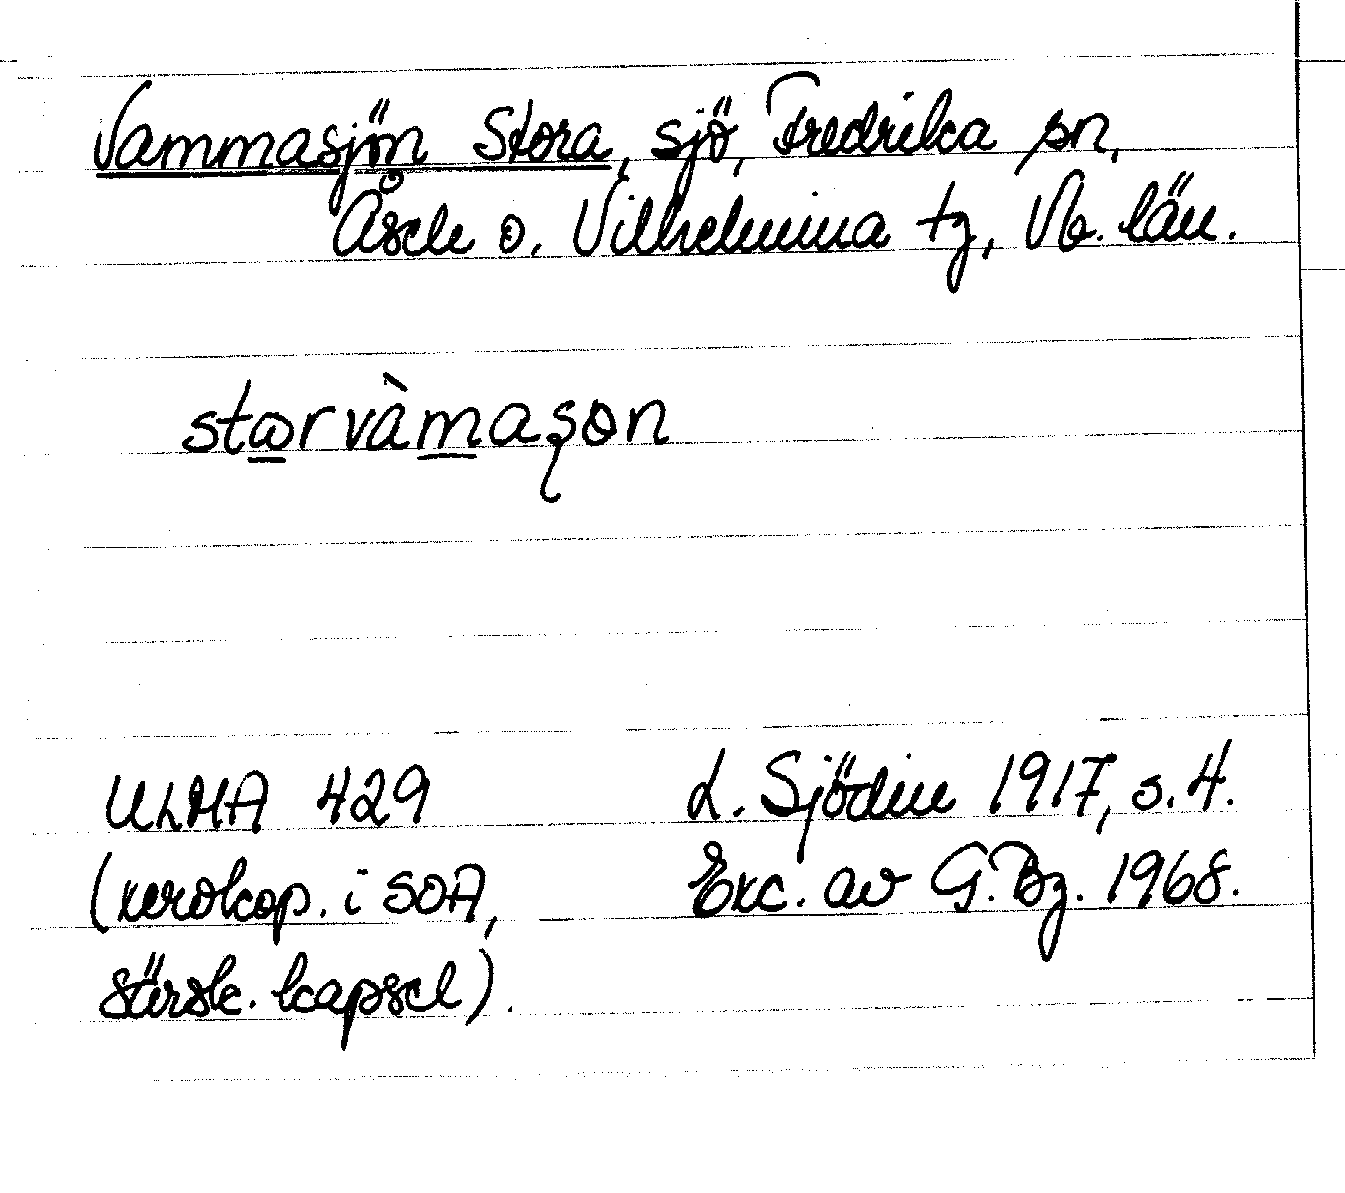 Vammasjön Stora, sjö, Fredrika sn,
Åsele o. Vilhelmina tg, Vb. län.
storvàmaşon
ULMA 429
L. Sjödin 1917, s. 4.
(xerokop. i SOA,
Exc. av G. Bg. 1968.
särsk. kapsel).